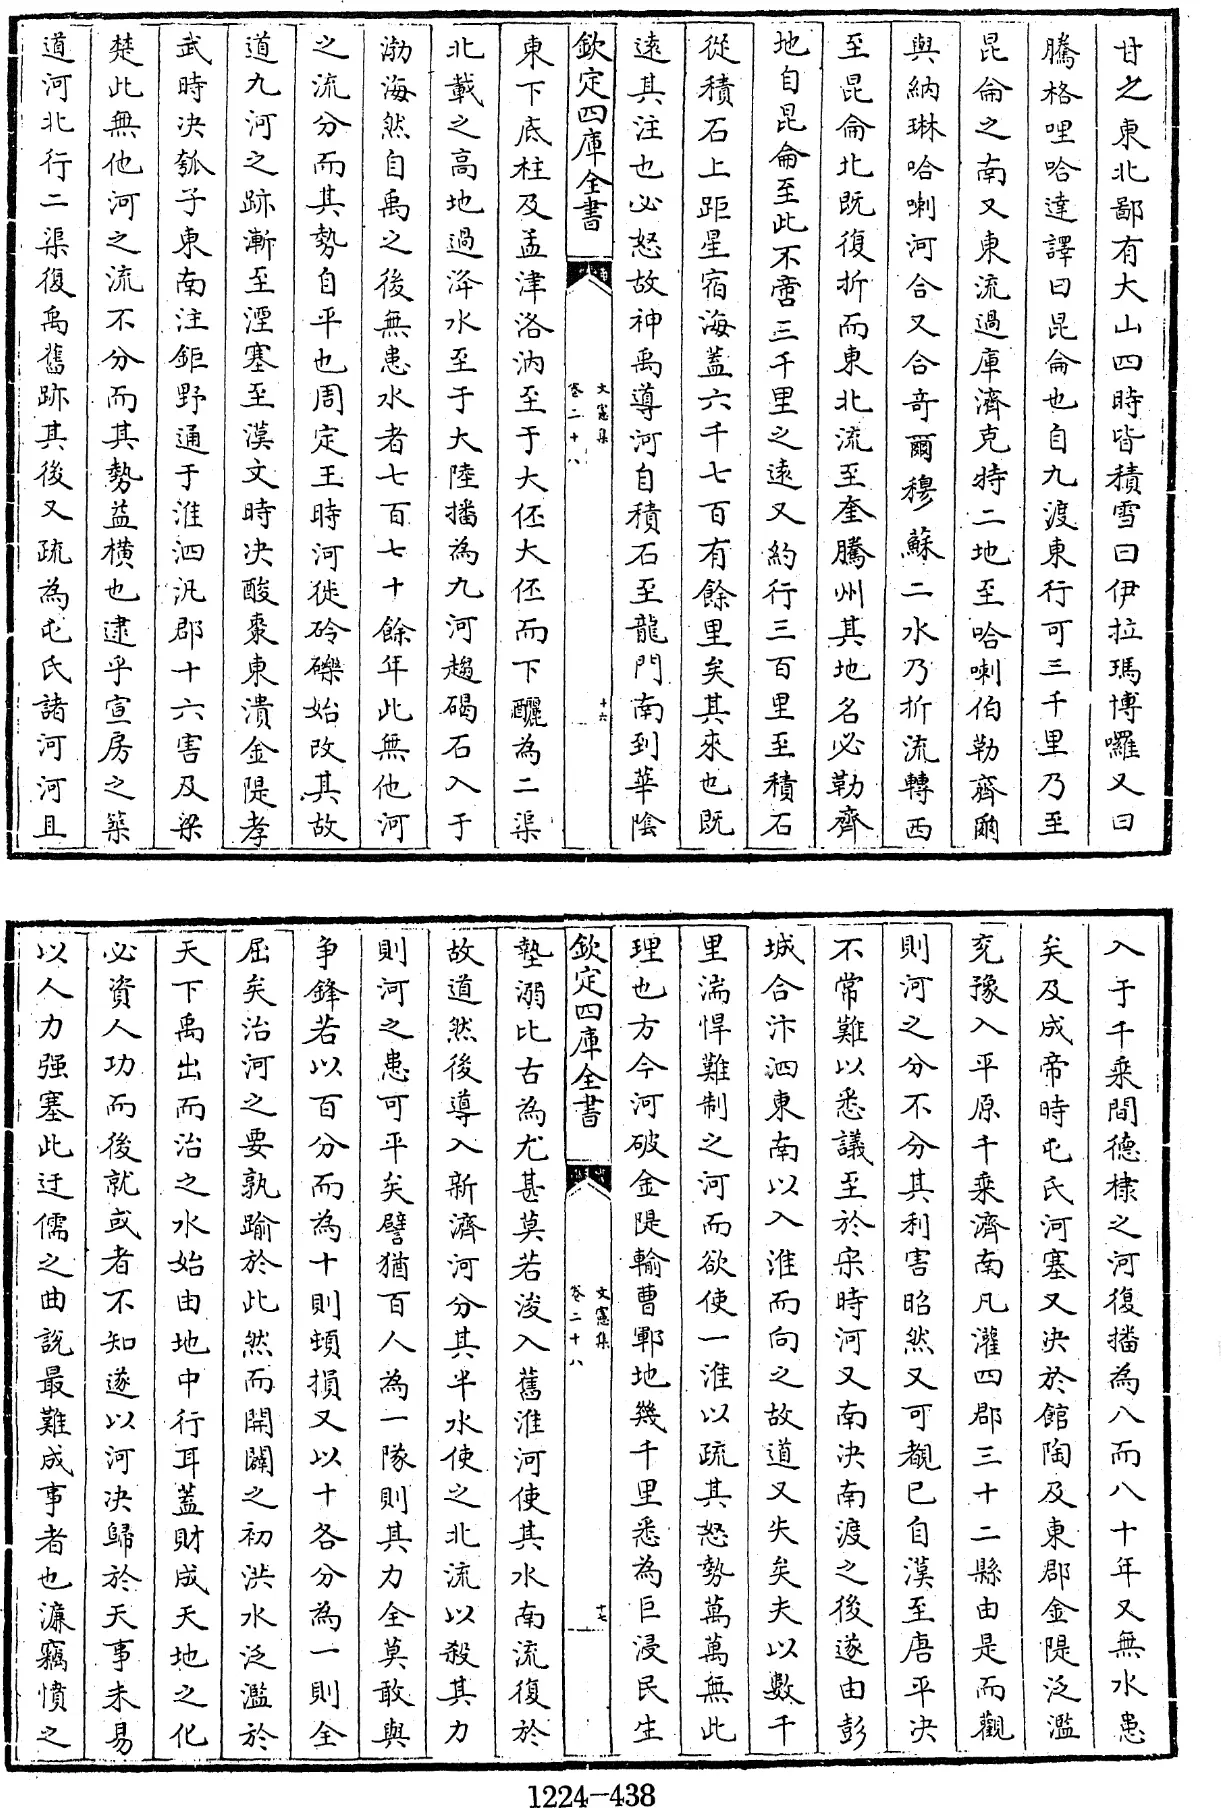 甘之東北鄙有大山四時皆積雪曰伊拉瑪博囉又曰
騰格哩哈達譯曰昆侖也自九渡東行可三千里乃至
昆侖之南又東流過庫濟克特二地至哈喇伯勒齊爾
與納琳哈喇河合又合奇爾穆蘇二水乃折流轉西
至昆侖北既復折而東北流至奎騰州其地名必勒齊
地自昆侖至此不啻三千里之遠又約行三百里至積石
從積石上距星宿海蓋六千七百有餘里矣其來也既
遠其注也必怒故神禹導河自積石至龍門南到華陰
欽定四庫全書
文憲集
卷二十八
十六
東下底柱及孟津洛汭至于大伾大伾而下釃為二渠
北載之高地過洚水至于大陸播為九河趨碣石入于
渤海然自禹之後無患水者七百七十餘年此無他河
之流分而其勢自平也周定王時河徙砱礫始改其故
道九河之跡漸至湮塞至漢文時决酸棗東潰金隄孝
武時决瓠子東南注鉅野通于淮泗汎郡十六害及梁
楚此無他河之流不分而其勢益横也逮乎宣房之築
道河北行二渠復禹舊跡其後又疏為屯氏諸河河且
入于千乘間德棣之河復播為八而八十年又無水患
矣及成帝時屯氏河塞又决於館陶及東郡金隄泛濫
兖豫入平原千乘濟南凡灌四郡三十二縣由是而觀
則河之分不分其利害昭然又可覩已自漢至唐平决
不常難以悉議至於宋時河又南决南渡之後遂由彭
城合汴泗東南以入淮而向之故道又失矣夫以數千
里湍悍難制之河而欲使一淮以疏其怒勢萬萬無此
理也方今河破金隄輸曹鄆地幾千里悉為巨浸民生
欽定四庫全書
文憲集
卷二十八
十七
墊溺比古為尤甚莫若浚入舊淮河使其水南流復於
故道然後導入新濟河分其半水使之北流以殺其力
則河之患可平矣譬猶百人為一隊則其力全莫敢與
争鋒若以百分而為十則頓損又以十各分為一則全
屈矣治河之要孰踰於此然而開闢之初洪水泛濫於
天下禹出而治之水始由地中行耳蓋財成天地之化
必資人功而後就或者不知遂以河决歸於天事未易
以人力强塞此迂儒之曲説最難成事者也濂竊憤之
1224-438